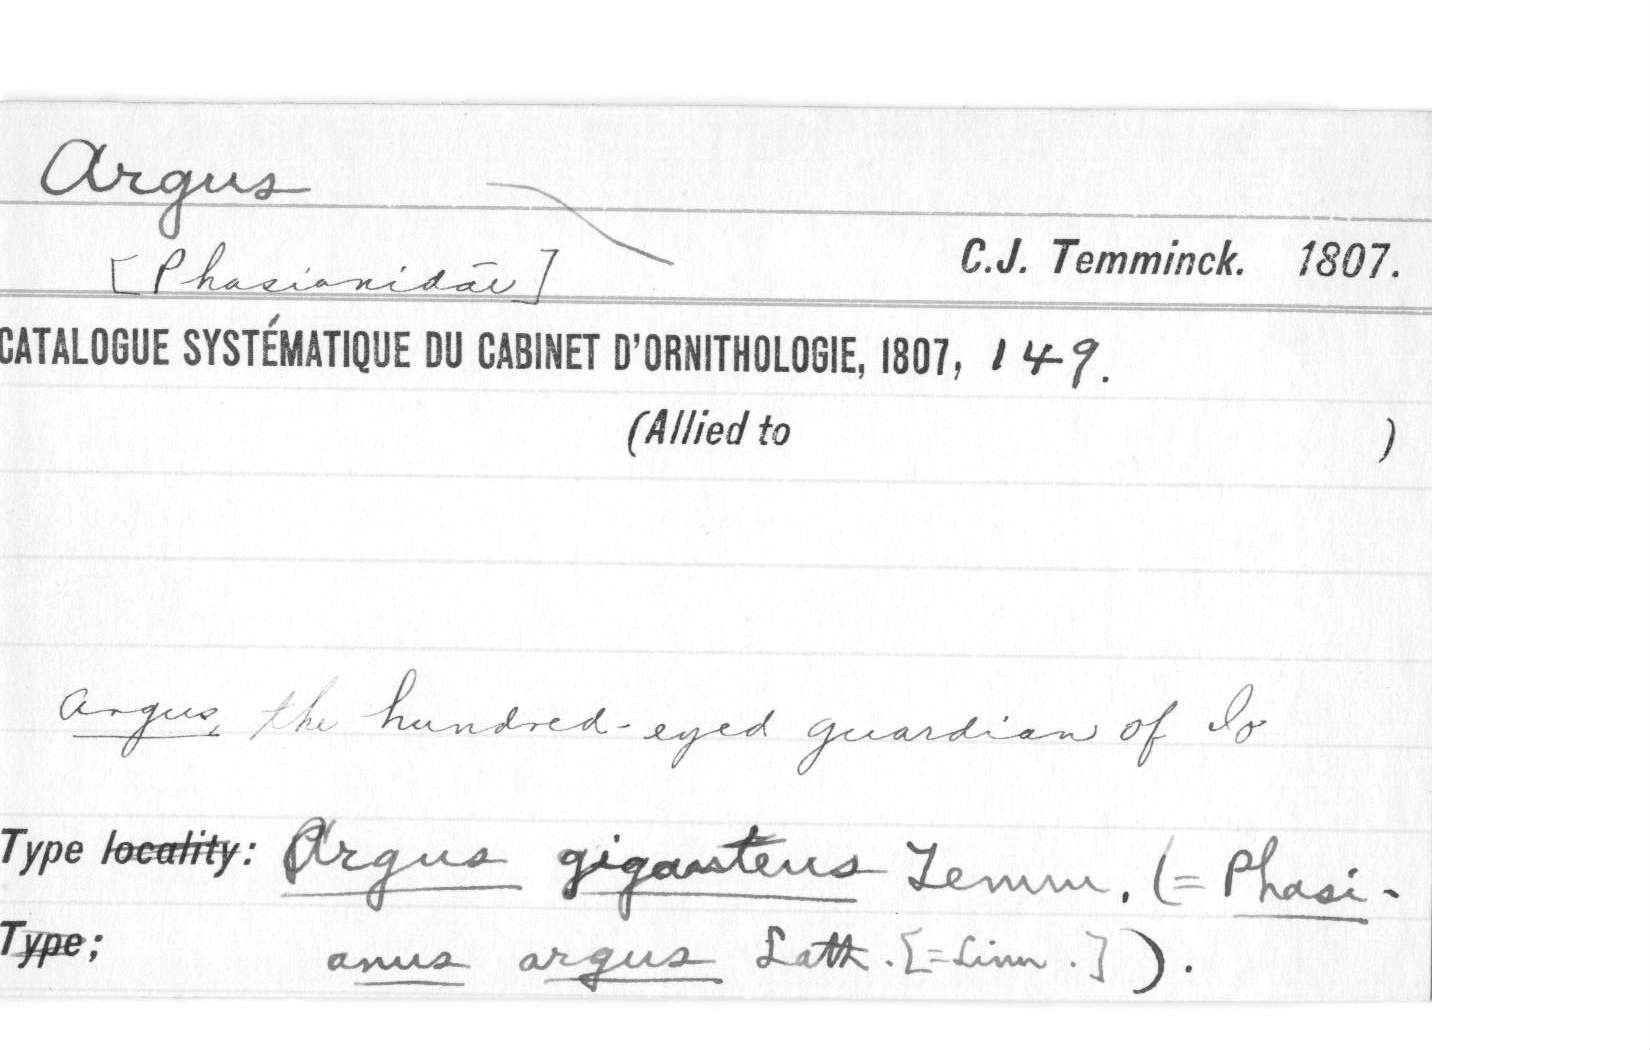 Argus
[Phasianidae]
C.J. Temminck. 1807.
CATALOGUE SYSTÉMATIQUE DU CABINET D'ORNITHOLOGIE, 1807, 149.
(Allied to )
Argus, the hundred-eyed guardian of Io
Type locality: Argus giganteus Temm. (= Phasi-
Type; anus argus Lath. [=Linn.]).